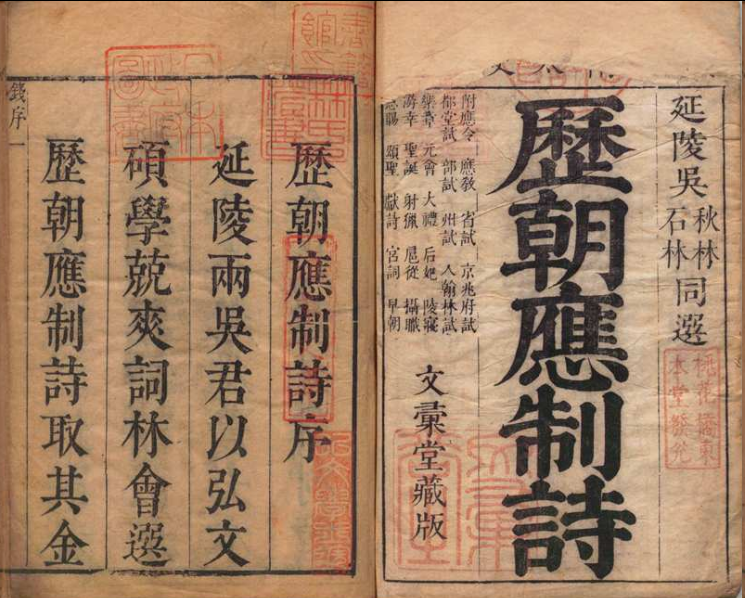 延陵吳秋林石林同選
歷朝應制詩
附應令 應教 省試 京兆府試
都堂試 部試 州試 入翰林試
樂章 元會 大禮 后妃 陵寢
游幸 聖誕 射獵 扈從 攝職
恩賜 頌聖 獻詩 宮詞 早朝
文彙堂藏版
桃花橋東
本堂發兌
歷朝應制詩序
延陵兩吳君以弘文
碩學兢爽詞林會選
歷朝應制詩取其金
錢序 一